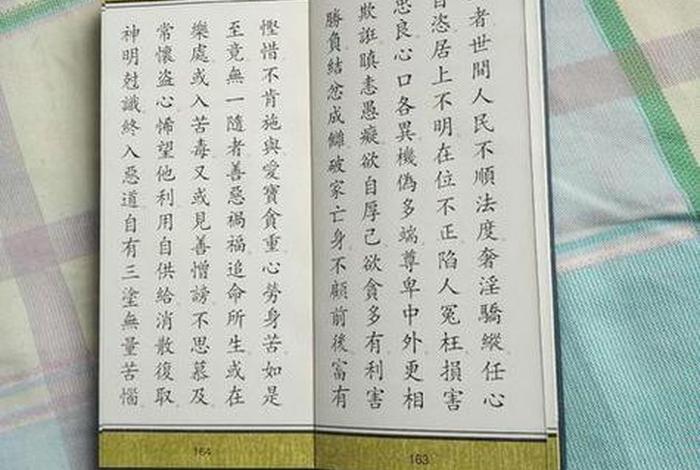 者世間人民不順法度奢淫驕縱任心
自恣居上不明在位不正陷人冤枉損害
忠良心口各異機偽多端尊卑中外更相
欺誑瞋恚愚癡欲自厚己欲貪多有利害
勝負結忿成讎破家亡身不顧前後富有
慳惜不肯施與愛寶貪重心勞身苦如是
至竟無一隨者善惡禍福追命所生或在
樂處或入苦毒又或見善憎謗不思慕及
常懷盜心悕望他利用自供給消散復取
神明剋識終入惡道自有三塗無量苦惱
163
164